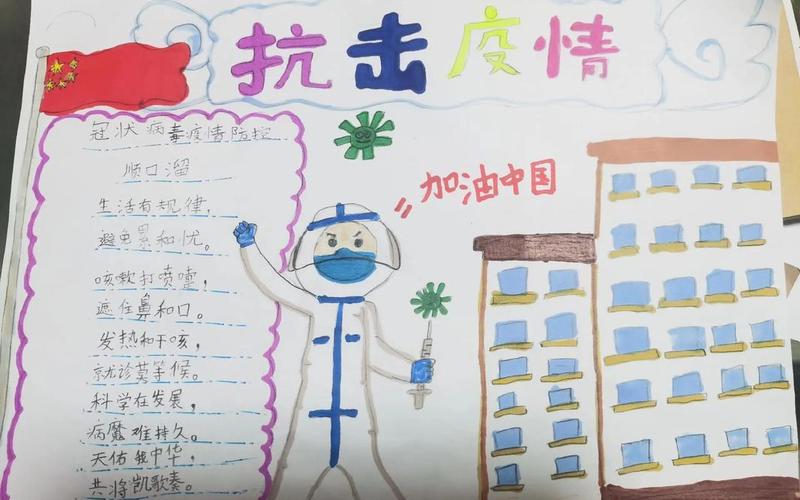 抗击疫情
冠状病毒疫情防控
顺口溜
生活有规律,
避免累和忧。
咳嗽打喷嚏,
遮住鼻和口。
发热和干咳,
就诊莫等候。
科学在发展,
病魔难持久。
天佑我中华,
共将凯歌奏。
加油中国